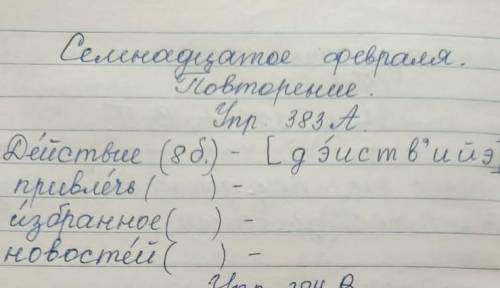 Семнадцатое февраля.
Повторение.
Упр. 383 А.
Де́йствие (8 б.) - [д э́ й с т в' и й э]
привле́чь ( ) -
и́збранное ( ) -
новосте́й ( ) -